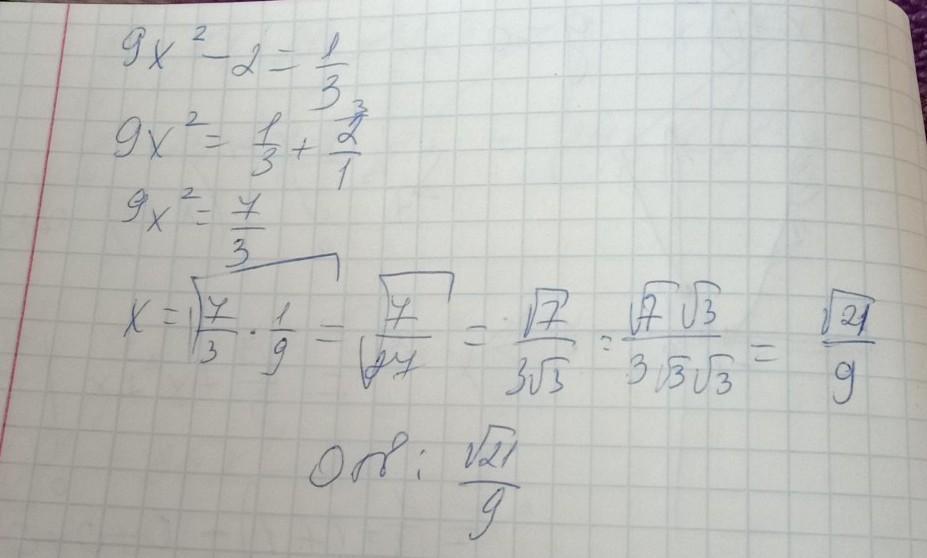 9x² - 2 = 1/3
9x² = 1/3 + 2/1 ³
9x² = 7/3
x = √(7/3 · 1/9) = √(7/27) = √7/(3√3) = √7 √3/(3√3 √3) = √21/9
Отв: √21/9